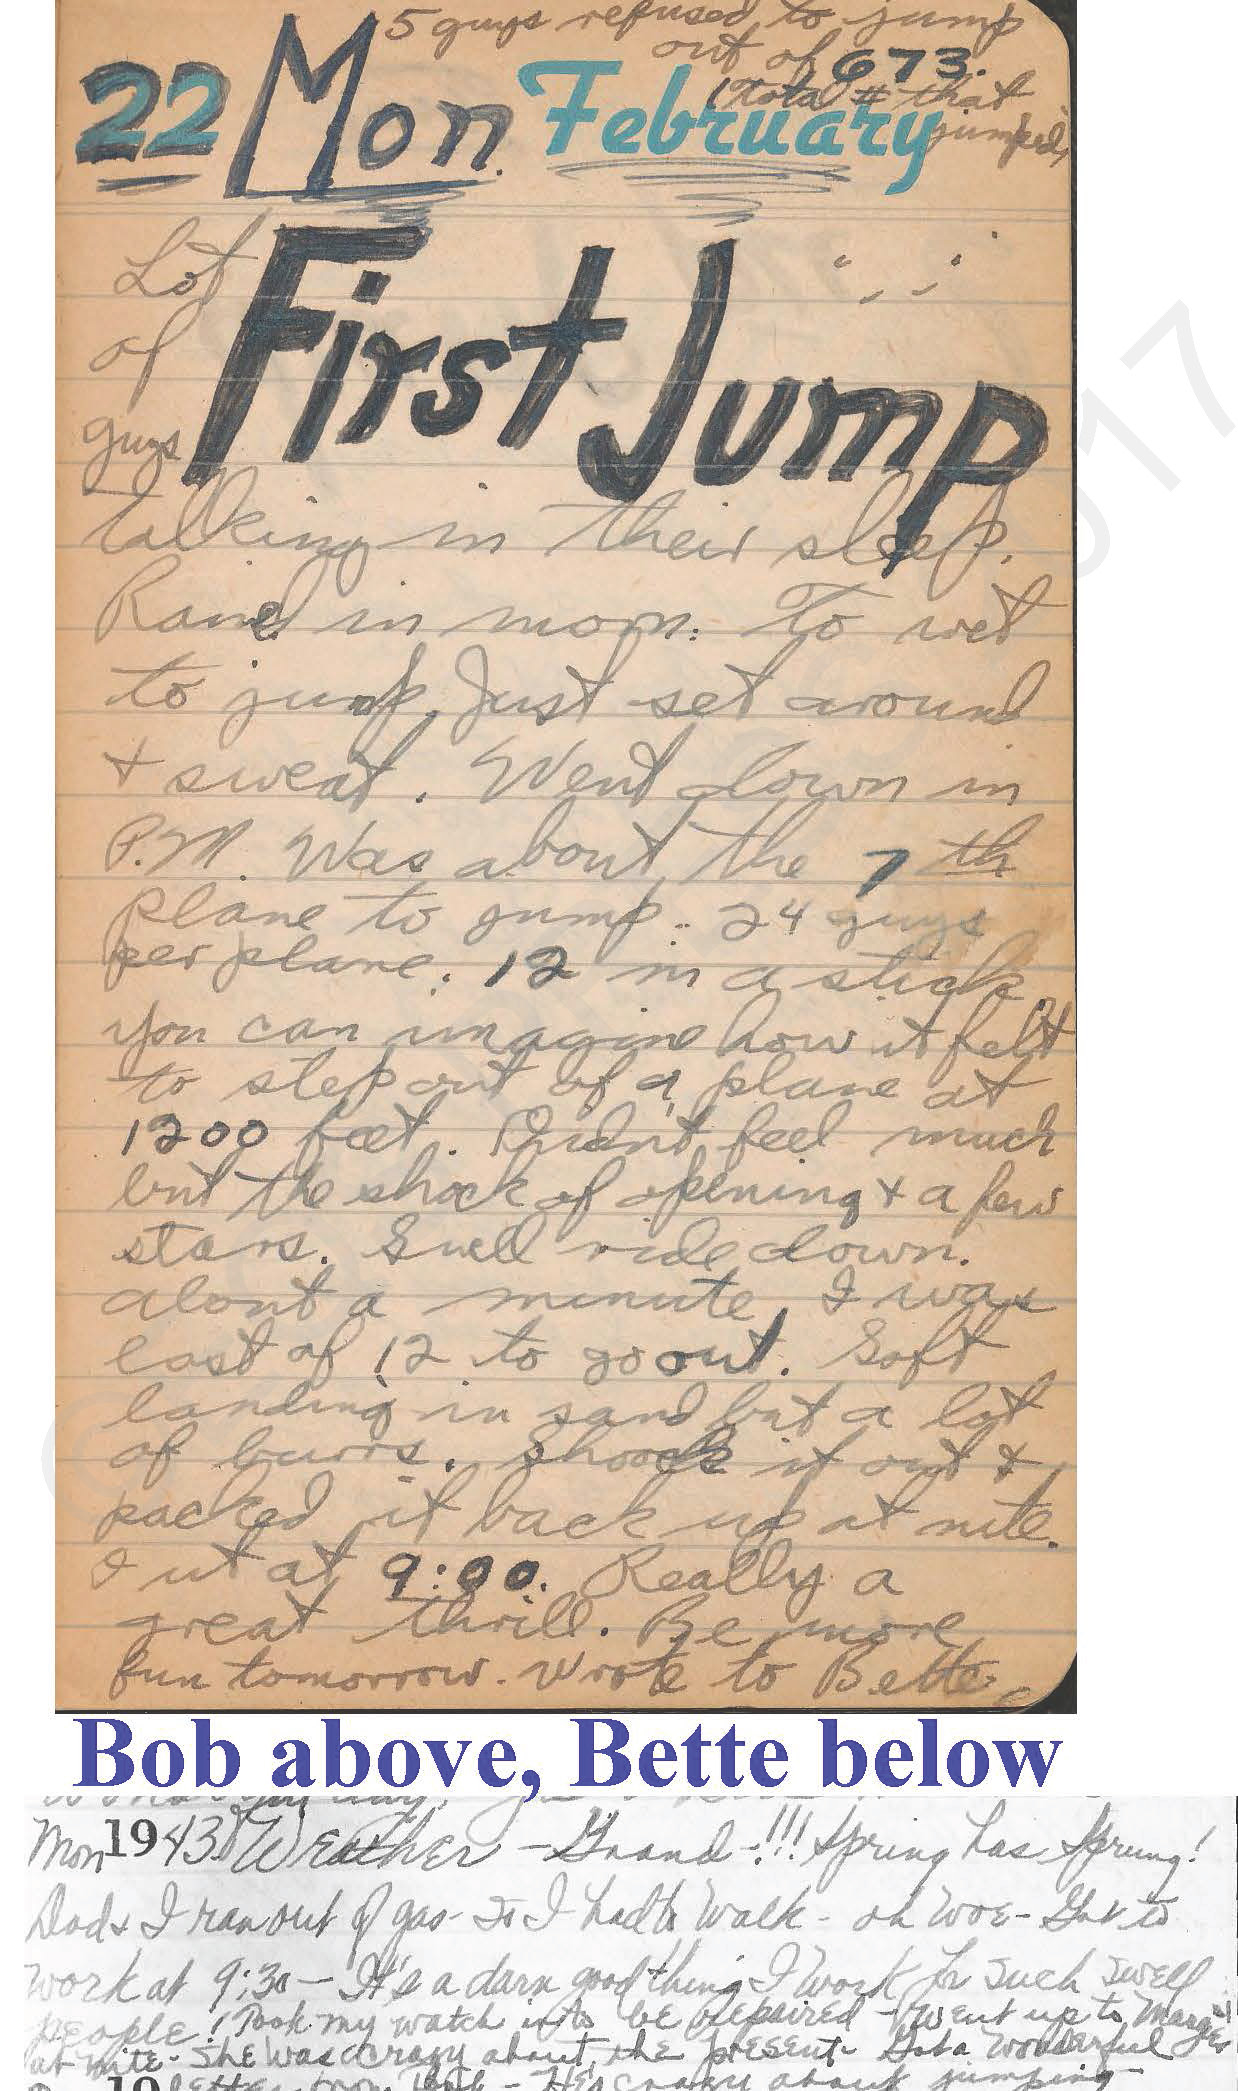 5 guys refused to jump
out of 673.
(Total # that
jumped)
22 Mon. February
First Jump
Lot
of
guys
talking in their sleep.
Rained in morn. To wet
to jump. Just set around
& sweat. Went down in
P.M. Was about the 7th
plane to jump. 24 guys
per plane. 12 in a stick.
You can imagine how it felt
to step out of a plane at
1200 feet. Didn't feel much
but the shock of opening & a few
stars. Swell ride down.
about a minute. I was
last of 12 to go out. Soft
landing in sand but a lot
of burrs. Shook it out &
packed it back up at nite.
at 9:00. Really a
great thrill. Be more
fun tomorrow. Wrote to Bette.
Bob above, Bette below
Mon 1943 Weather - Grand -!!! Spring has Sprung!
Dad & I ran out of gas - So I had to walk - oh woe - Got to
work at 9:30 - It's a darn good thing I work for such swell
people! Took my watch in to be repaired - Went up to Marge's
at nite - She was crazy about the present - Got a wonderful
letter from - He's crazy about jumping -
19
2017